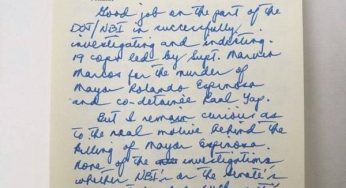 Good job on the part of the
DOJ/NBI in successfully
investigating and indicting
19 cops led by Supt. Marvin
Marcos for the murder of
Mayor Rolando Espinosa
and co-detainee Raul Yap.
But I remain curious as
to the real motive behind the
killing of Mayor Espinosa.
None of the investigations
whether NBI's or the Senate's